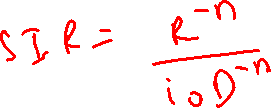 SIR = R^{-n} / i_0 D^{-n}